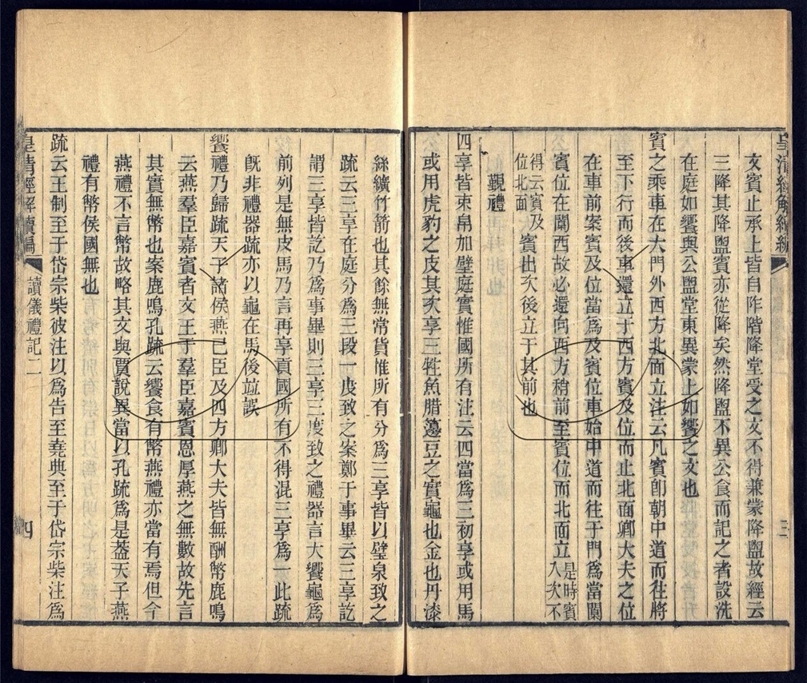 皇清經解續編
三
文賓止承上皆自阼階降堂受之文不得兼蒙降盥故經云
三降其降盥賓亦從降矣然降盥不異公食而記之者設洗
在庭如饗與公盥堂東異蒙上如饗之文也
賓之乘車在大門外西方北面立注云凡賓卽朝中道而往將
至下行而後車還立于西方賓及位而止北面卿大夫之位
在車前案賓及位當爲及賓位車始中道而往于門爲當闑
賓位在闑西故必還向西方稍前至賓位而北面立是時賓入大不
得云賓及位北面賓出大後立于其前也
覲禮
四享皆束帛加璧庭實惟國所有注云四當爲三初享或用馬
或用虎豹之皮其次享三牲魚腊籩豆之實龜也金也丹漆
絲纊竹箭也其餘無常貨惟所有分爲三享皆以璧帛致之
疏云三享在庭分爲三段一度致之案鄭于事畢云三享訖
謂三享皆訖乃爲事畢則三享三度致之禮器言大饗龜爲
前列是無皮馬乃言再享貢國所有不得混三享爲一此疏
旣非禮器疏亦以龜在馬後竝誤
饗禮乃歸疏天子諸侯燕己臣及四方卿大夫皆無酬幣鹿鳴
云燕羣臣嘉賓者文王于羣臣嘉賓恩厚燕之無數故先言
其實無幣也案鹿鳴孔疏云饗食有幣燕禮亦當有焉但今
燕禮不言幣故略其文與賈說異當以孔疏爲是葢天子燕
禮有幣侯國無也
疏云王制至于岱宗柴彼注以爲告至堯典至于岱宗柴注爲
皇清經解續編
讀儀禮記二
四